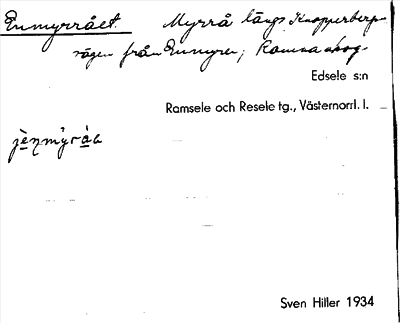 Enmyrrået. Myrrå längs Knopperberg-
vägen från Enmyren; Ramna skog.
Edsele s:n
Ramsele och Resele tg., Västernorrl. l.
Sven Hiller 1934